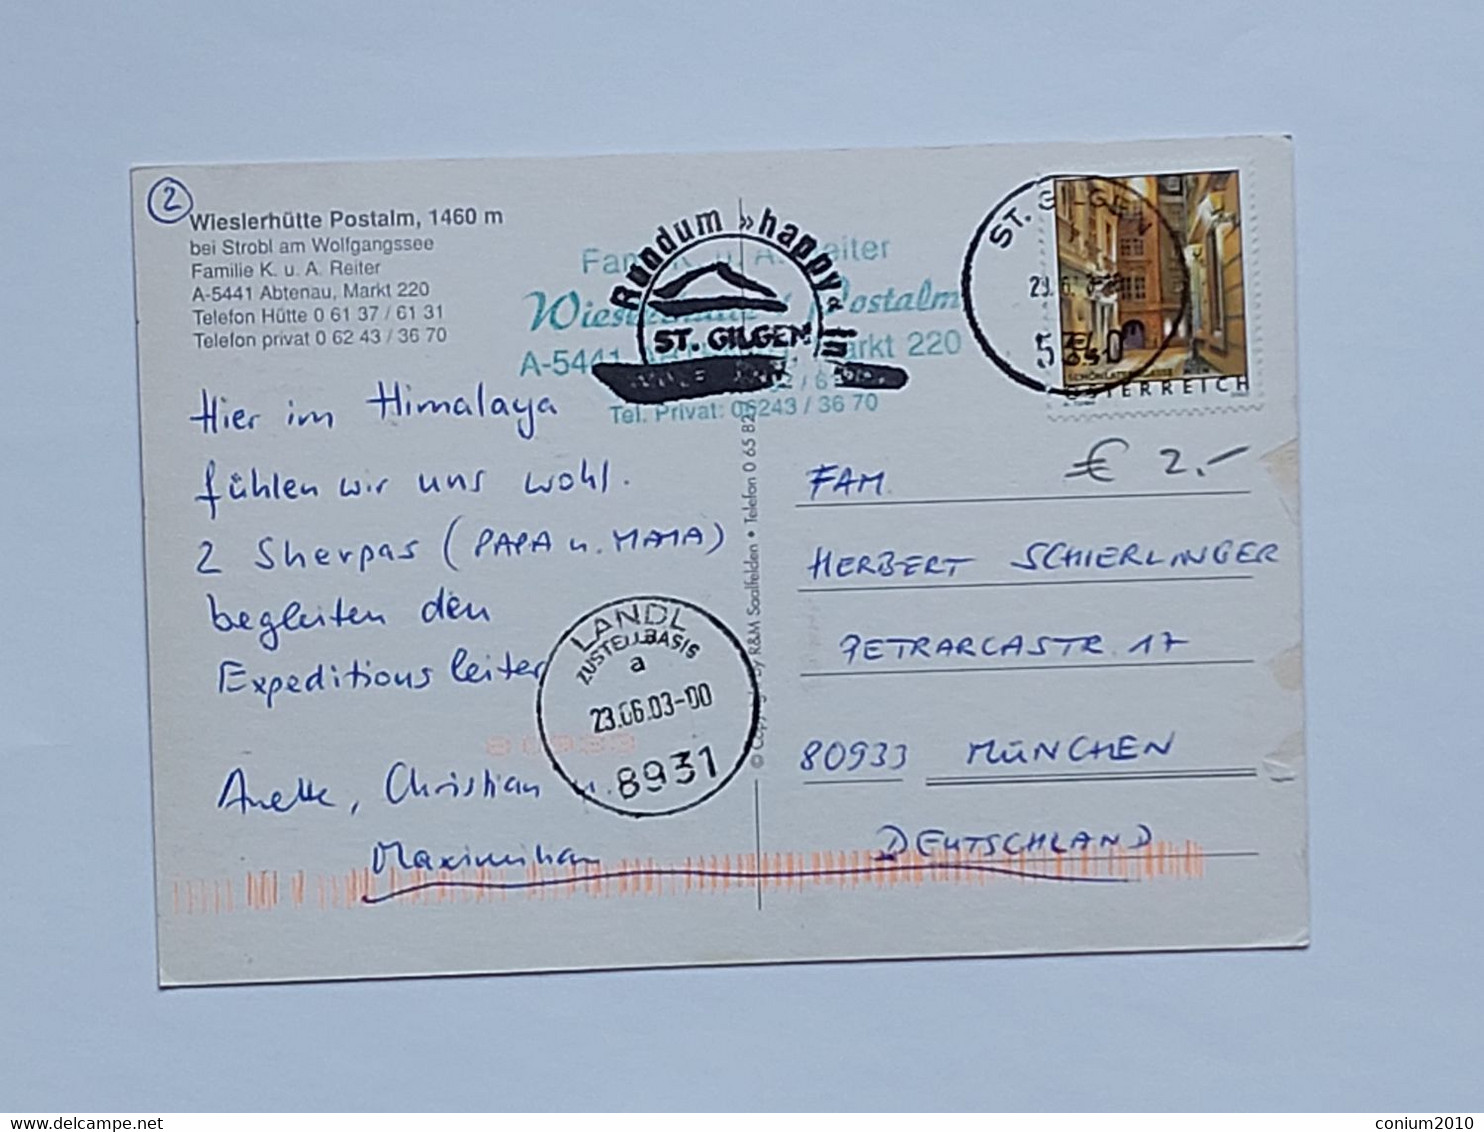 2
Wieslerhütte Postalm, 1460 m
bei Strobl am Wolfgangssee
Familie K. u. A. Reiter
A-5441 Abtenau, Markt 220
Telefon Hütte 0 61 37 / 61 31
Telefon privat 0 62 43 / 36 70
Rundum »happy«
ST. GILGEN
Reiter
Postalm
A-5441 Markt 220
Tel. Privat: 06243 / 36 70
ST. GILGEN
ÖSTERREICH
Hier im Himalaya
fühlen wir uns wohl.
2 Sherpas (PAPA u. MAMA)
begleiten den
Expeditionsleiter
Anette, Christian u.
Maximilian
LANDL
ZUSTELLBASIS
a
23.06.03-00
8931
© Copyright by R&M Saalfelden • Telefon 0 65 82
€ 2.-
FAM.
HERBERT SCHIERLINGER
PETRARCASTR. 17
80933 MÜNCHEN
DEUTSCHLAND
conium2010